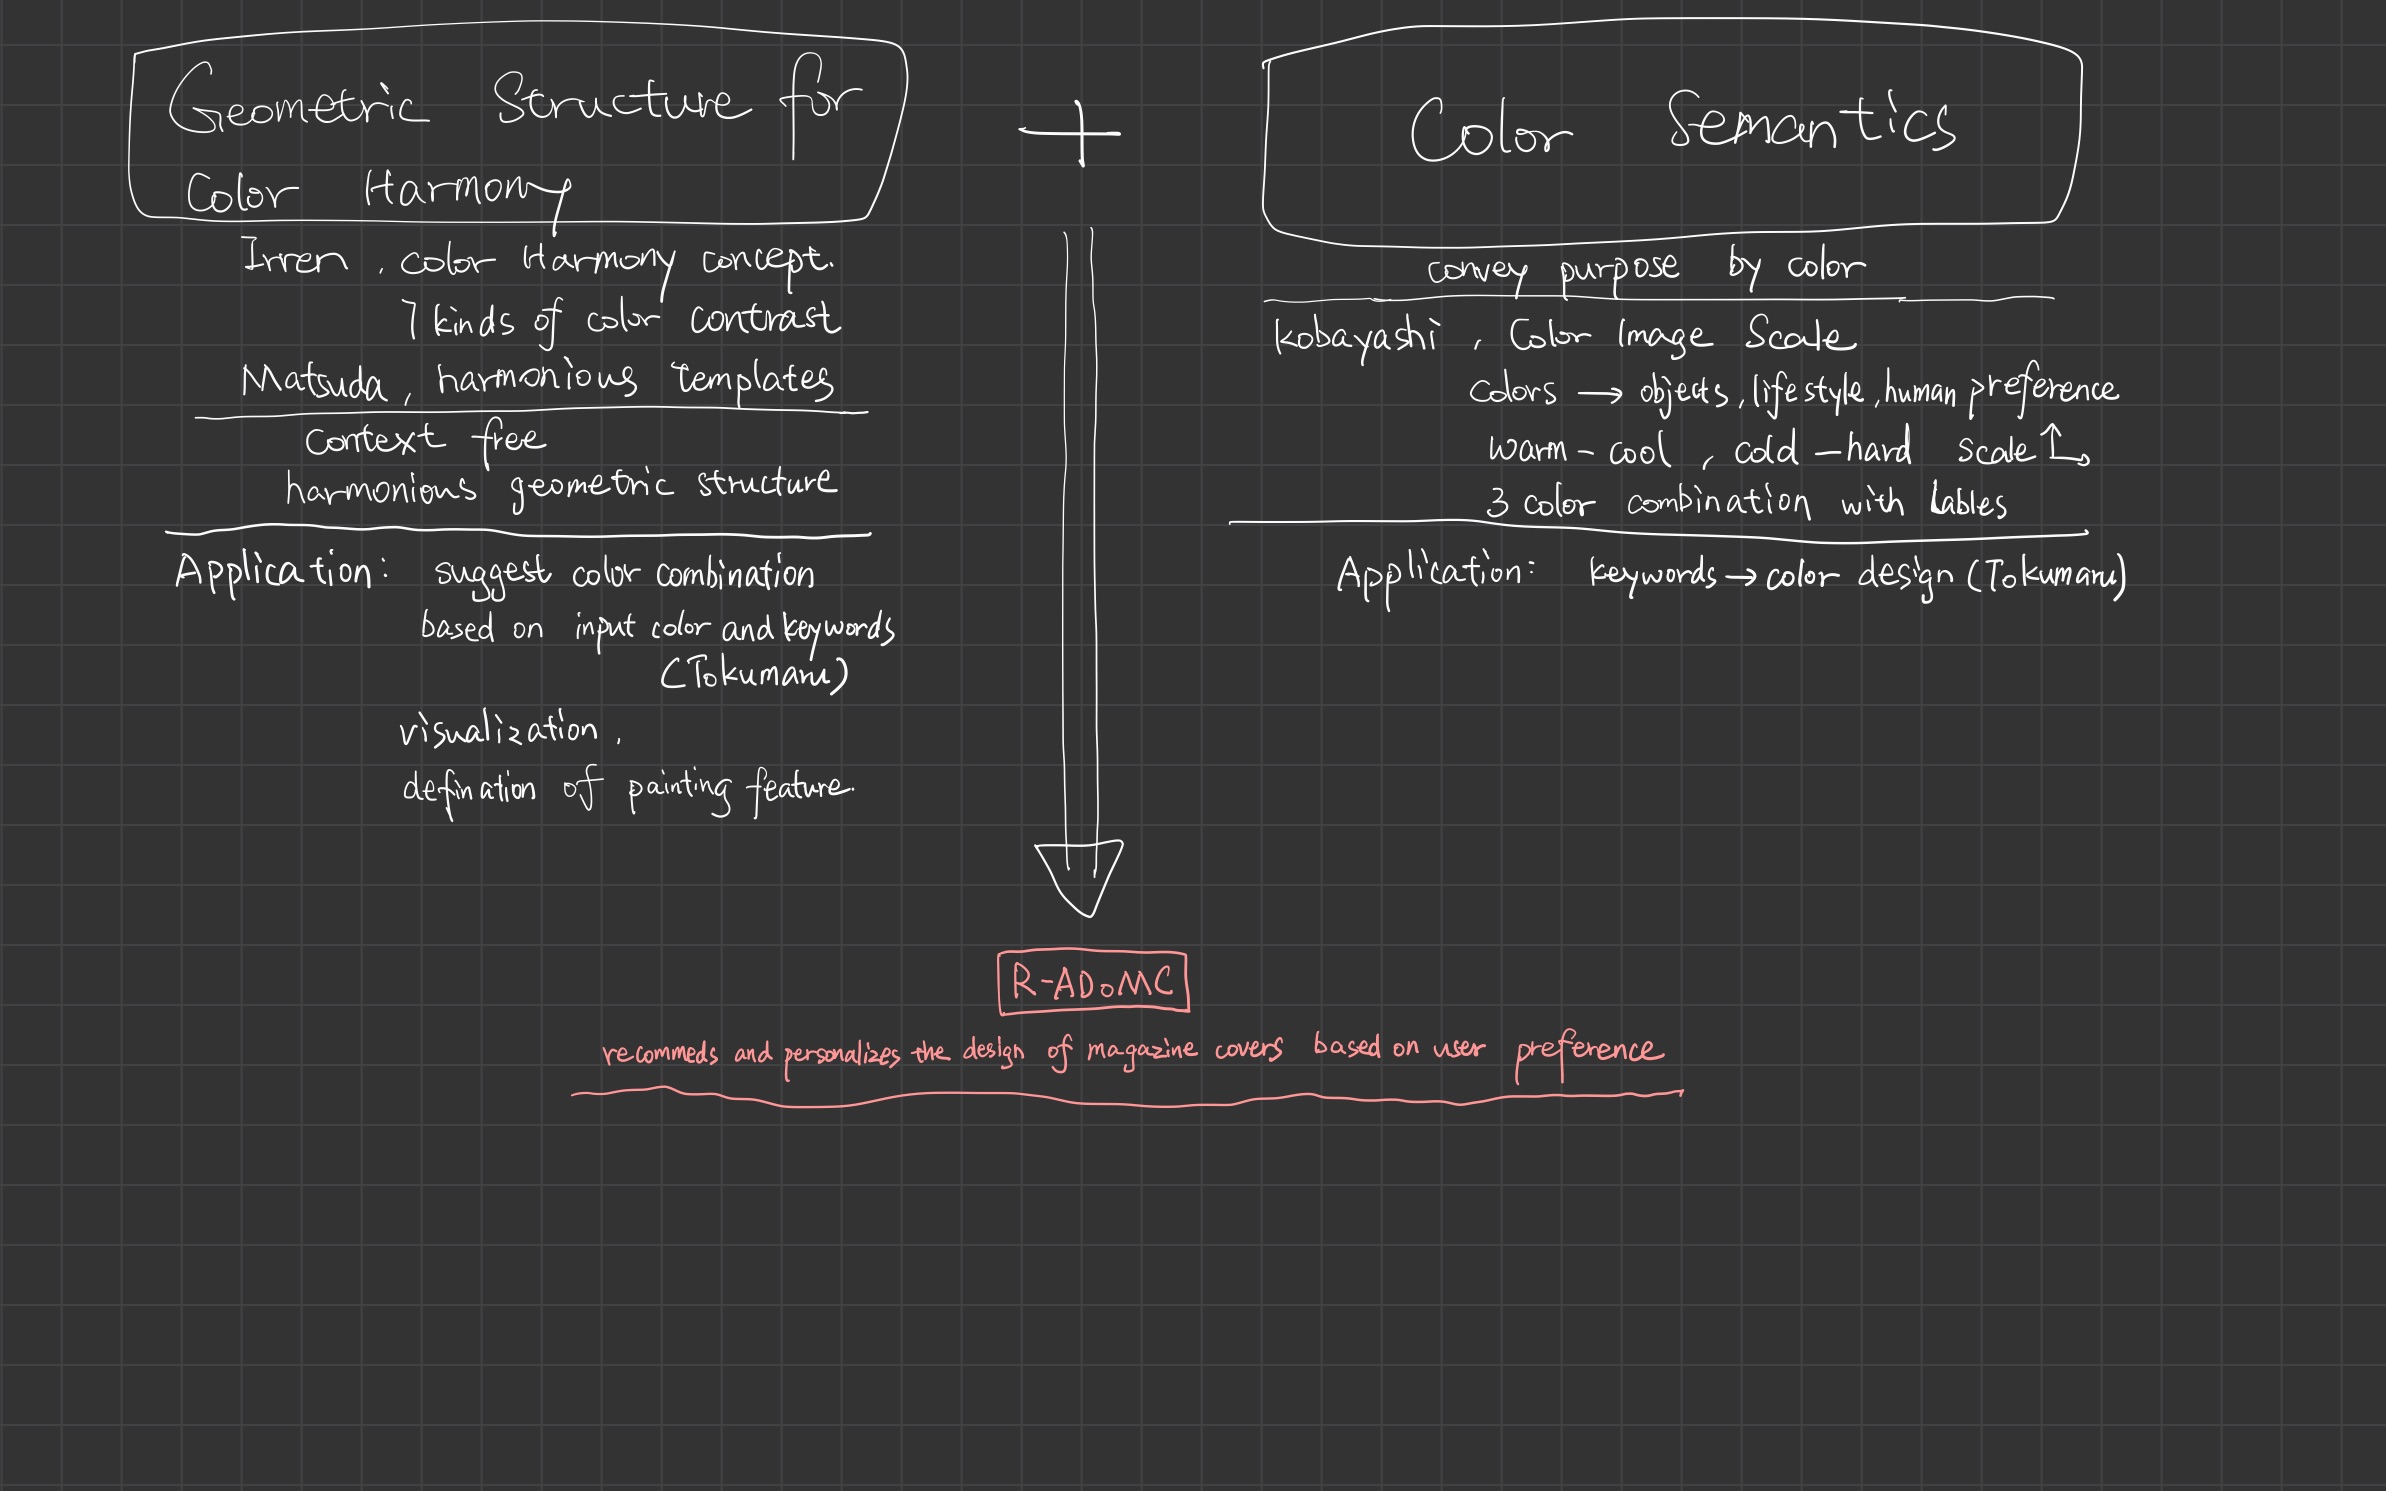 Geometric Structure for
Color Harmony
Irren, color Harmony concept.
7 kinds of color contrast
Matsuda, harmonious templates
Context free
harmonious geometric structure
Application: suggest color combination
based on input color and keywords
(Tokumaru)
visualization,
defination of painting feature.
+
Color Semantics
convey purpose by color
Kobayashi, Color Image Scale
Colors → objects, lifestyle, human preference
warm - cool, cold - hard scale
3 color combination with lables
Application: keywords → color design (Tokumaru)
R-ADoMC
recommeds and personalizes the design of magazine covers based on user preference